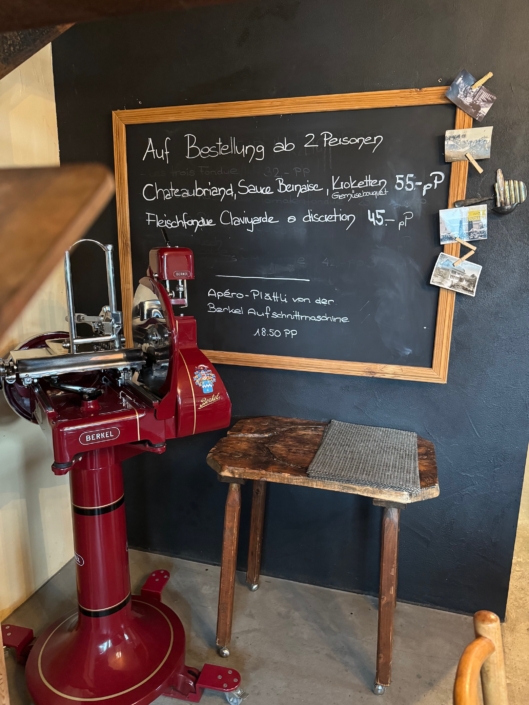 Auf Bestellung ab 2 Personen
Chateaubriand, Sauce Bernaise, Kroketten 55.- pP
Gemüsebouquet
Fleischfondue Clavigarde a discretion 45.- pP
Apéro-Plättli von der
Berkel Aufschnittmaschine
18.50 PP
BERKEL
Berkel
BERKEL